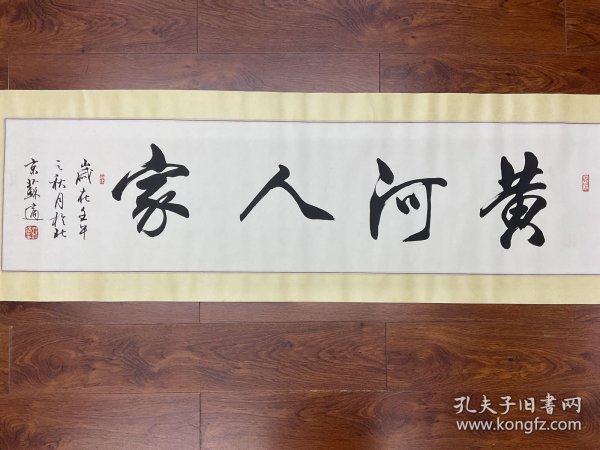 黄河人家
歲在壬午
之秋月於北
京蘇適
孔夫子旧書网
www.kongfz.com